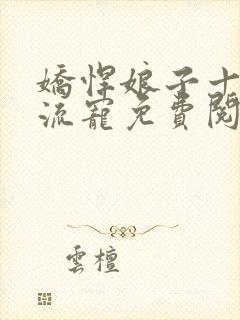 嬌悍娘子十
流寵免費閱
雲檀